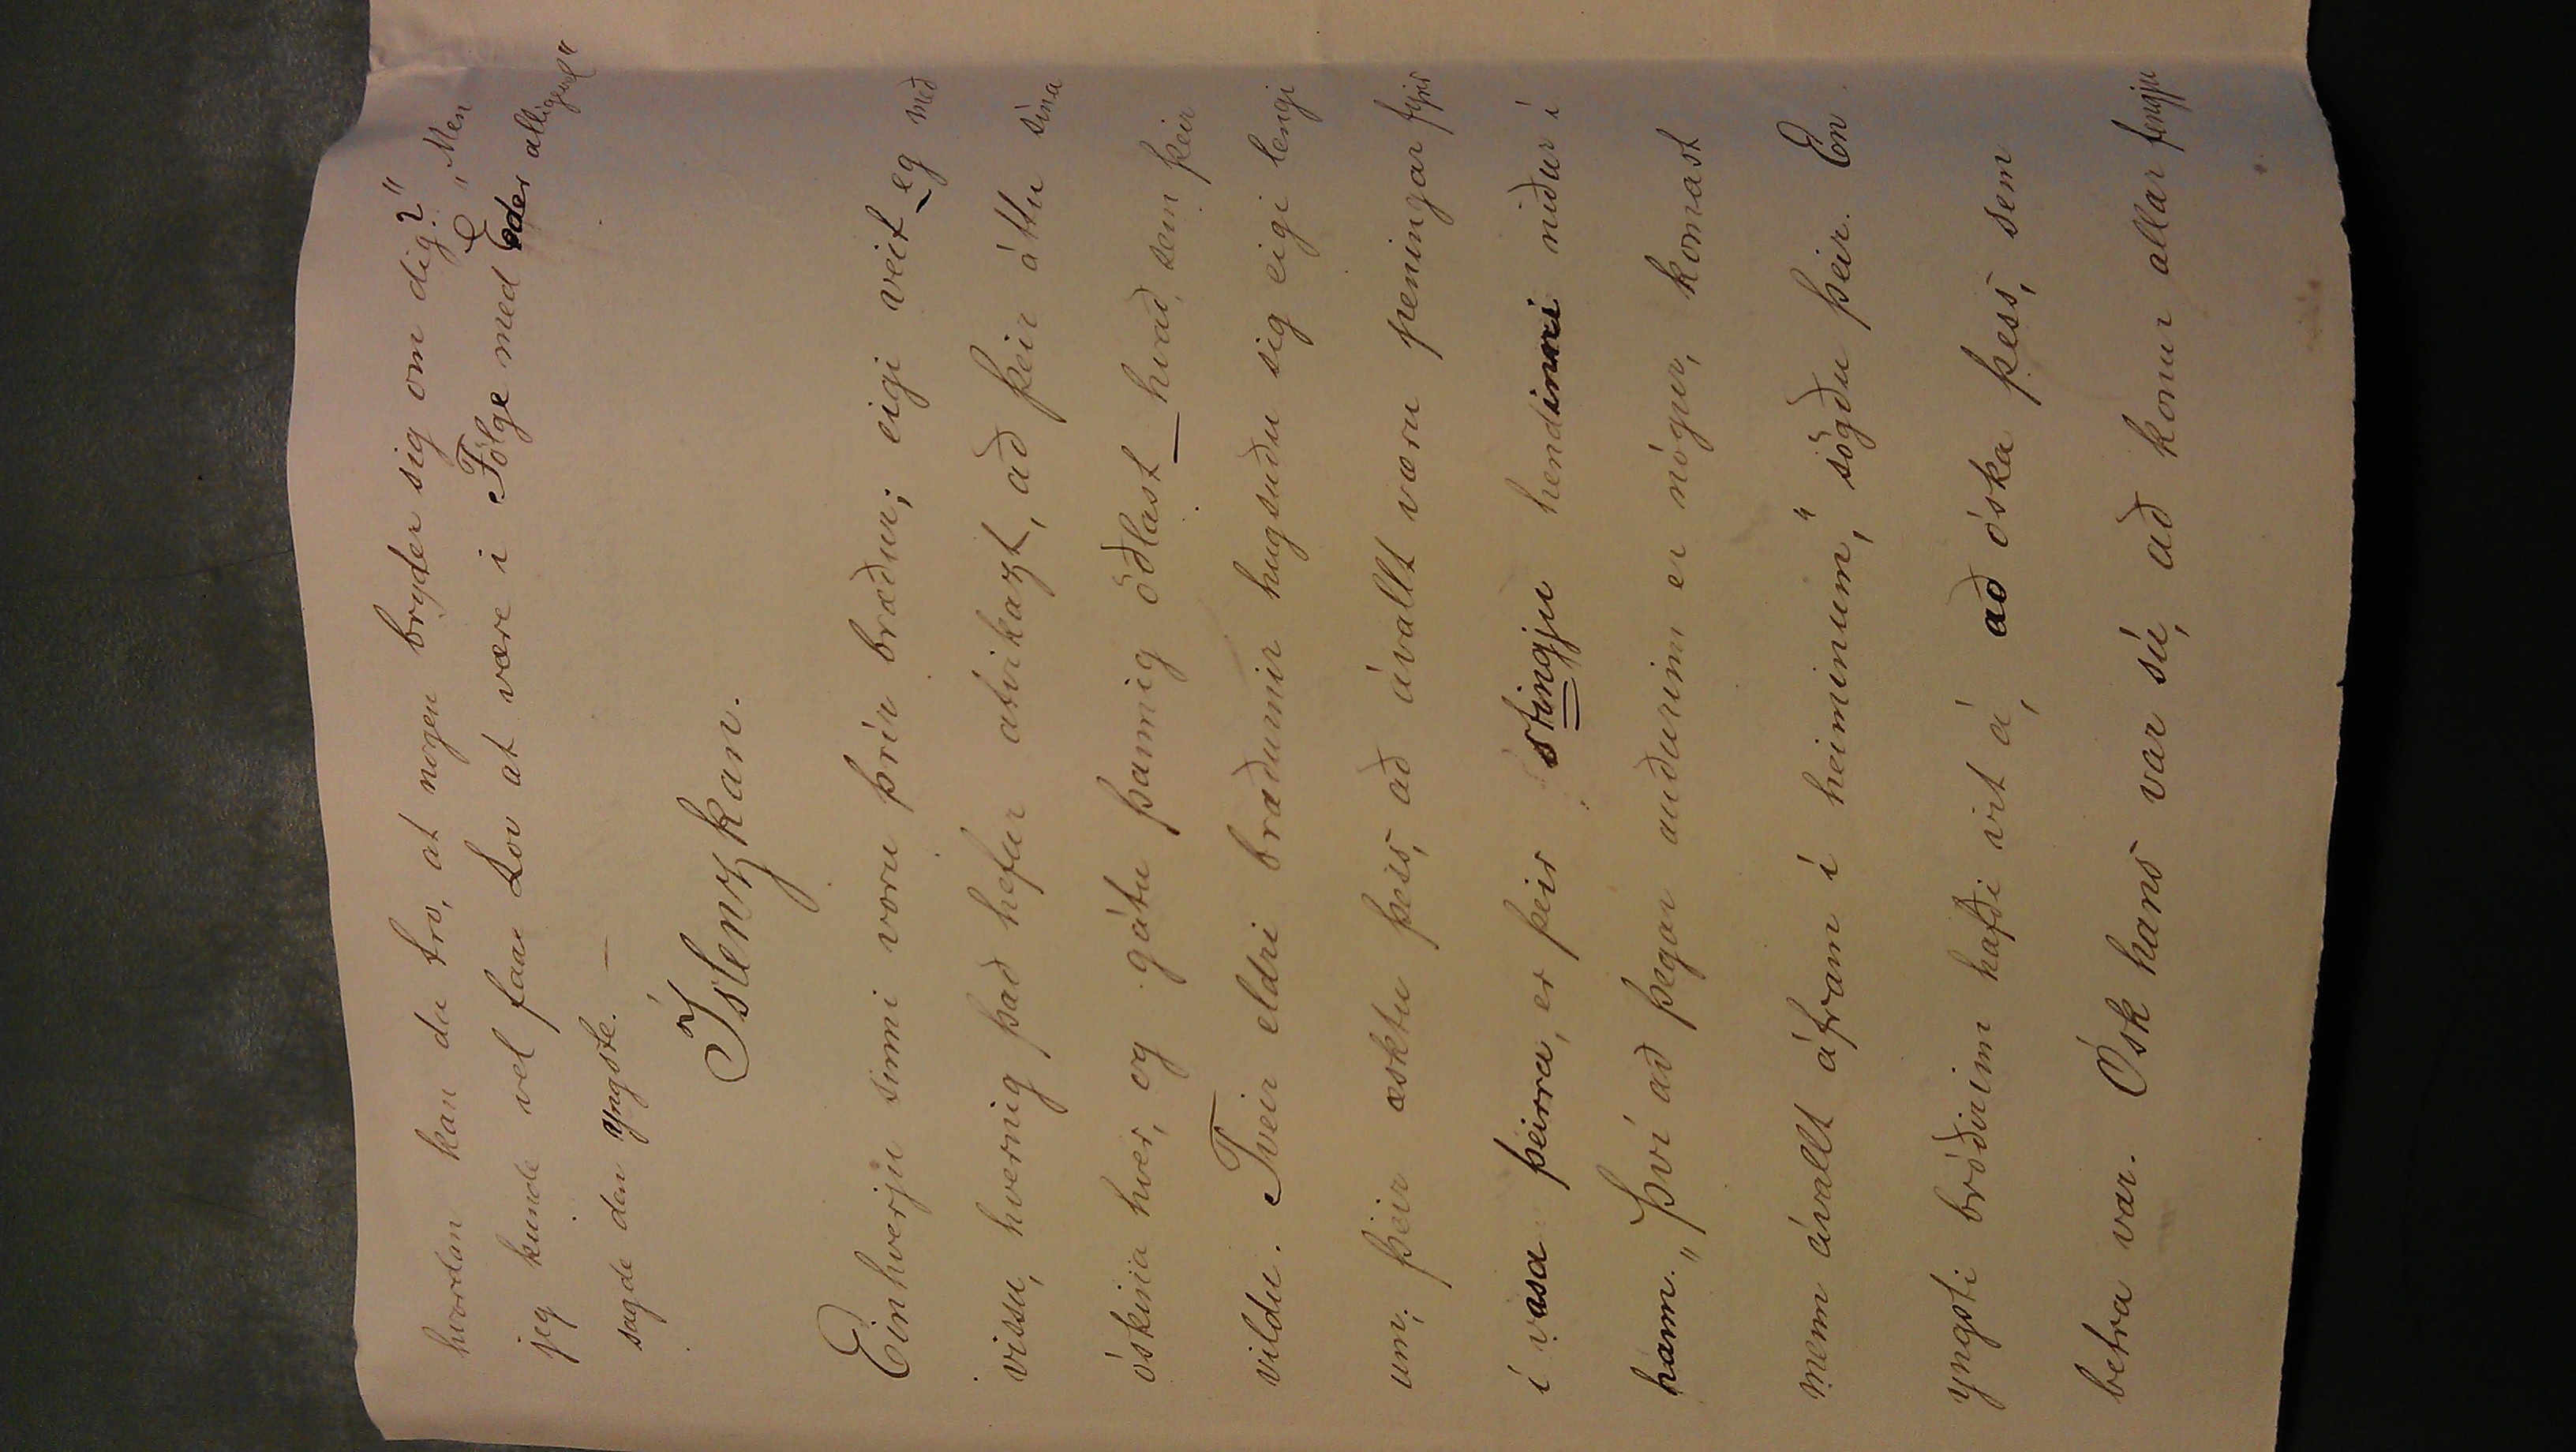 hvordan kan du tro, at nogen bryder sig om dig?" "Men
jeg kunde vel faae Lov at være i Følge med Eder alligevel"
sagde den Yngste. —
Íslenzkan.
Einhverju sinni voru þrír bræður; eigi veit eg með
vissu, hvernig það hefur atvikazt, að þeir áttu sína
óskina hver, og gátu þannig öðlast hvað, sem þeir
vildu. Tveir eldri bræðurnir hugsuðu sig eigi lengi
um; þeir æsktu þess, að ávallt væru peningar fyrir
í vasa þeirra, er þeir stingju hendinni niður í
hann. „Því að þegar auðurinn er nógur, komast
menn ávallt áfram í heiminum," sögðu þeir. En
yngsti bróðurinn hafði vit á, að óska þess, sem
betra var. Ósk hans var sú, að konur allar fengju